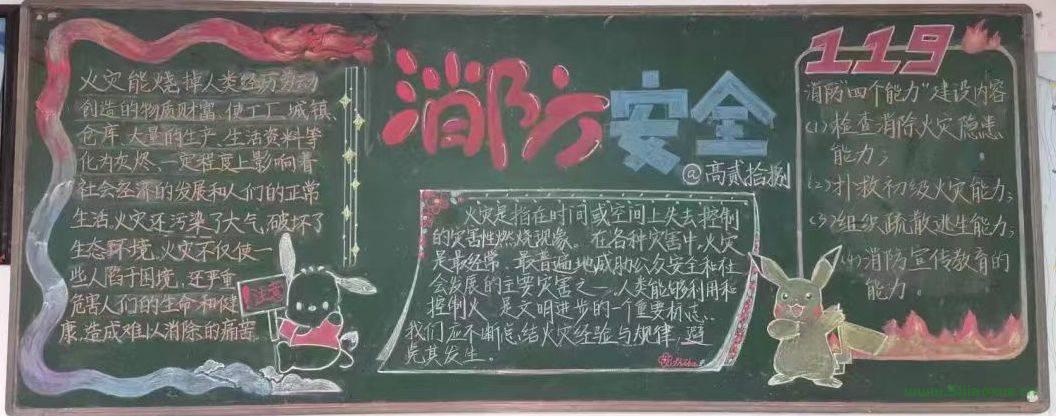 火灾能烧掉人类经历劳动
创造的物质财富、使工厂、城镇、
仓库、大量的生产、生活资料等
化为灰烬、一定程度上影响着
社会经济的发展和人们的正常
生活。火灾还污染了大气，破坏了
生态环境。火灾不仅使一
些人陷于困境，还严重
危害人们的生命和健
康，造成难以消除的痛苦。
注意
消防安全
@高贰拾捌
火灾是指在时间或空间上失去控制
的灾害性燃烧现象。在各种灾害中，火灾
是最经常、最普遍地威胁公众安全和社
会发展的主要灾害之一。人类能够利用和
控制火，是文明进步的一个重要标志。
我们应不断总结火灾经验与规律，避
免其发生。
119
消防“四个能力”建设内容
(1)检查消除火灾隐患
能力；
(2)扑救初级火灾能力；
(3)组织疏散逃生能力；
(4)消防宣传教育的
能力。